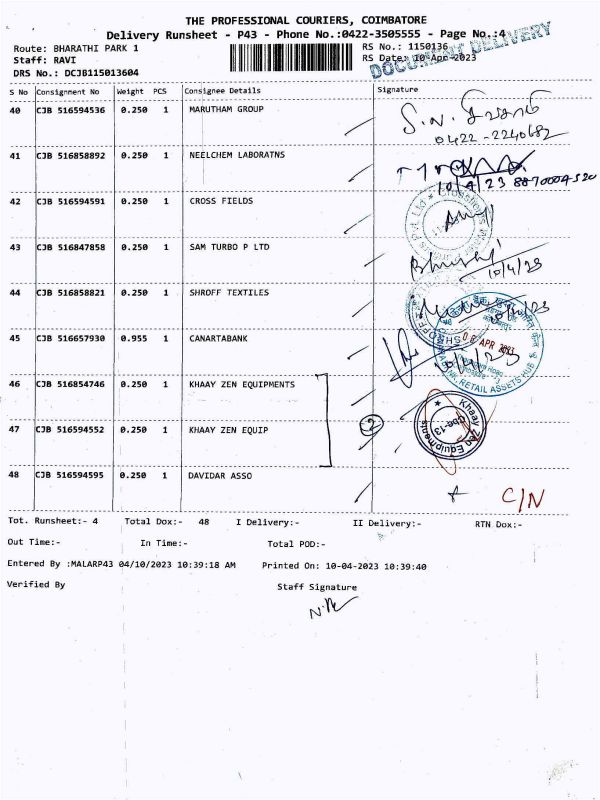 THE PROFESSIONAL COURIERS, COIMBATORE
Delivery Runsheet - P43 - Phone No.:0422-3505555 - Page No.:4
DOCUMENT DELIVERY
Route: BHARATHI PARK 1
RS No.: 1150136
Staff: RAVI
RS Date: 10-Apr-2023
DRS No.: DCJB115013604
S No Consignment No Weight PCS Consignee Details Signature
40 CJB 516594536 0.250 1 MARUTHAM GROUP
0422-2240682
41 CJB 516858892 0.250 1 NEELCHEM LABORATNS
10/4/23 8870004520
42 CJB 516594591 0.250 1 CROSS FIELDS
43 CJB 516847858 0.250 1 SAM TURBO P LTD
10/4/23
44 CJB 516858821 0.250 1 SHROFF TEXTILES
45 CJB 516657930 0.955 1 CANARTABANK
APR 2023
RETAIL ASSETS HUB
10/4/23
46 CJB 516854746 0.250 1 KHAAY ZEN EQUIPMENTS
Khaay Zen Equipments
Cbe-13
47 CJB 516594552 0.250 1 KHAAY ZEN EQUIP
2
48 CJB 516594595 0.250 1 DAVIDAR ASSO
C/N
Tot. Runsheet:- 4 Total Dox:- 48 I Delivery:- II Delivery:- RTN Dox:-
Out Time:- In Time:- Total POD:-
Entered By :MALARP43 04/10/2023 10:39:18 AM Printed On: 10-04-2023 10:39:40
Verified By Staff Signature